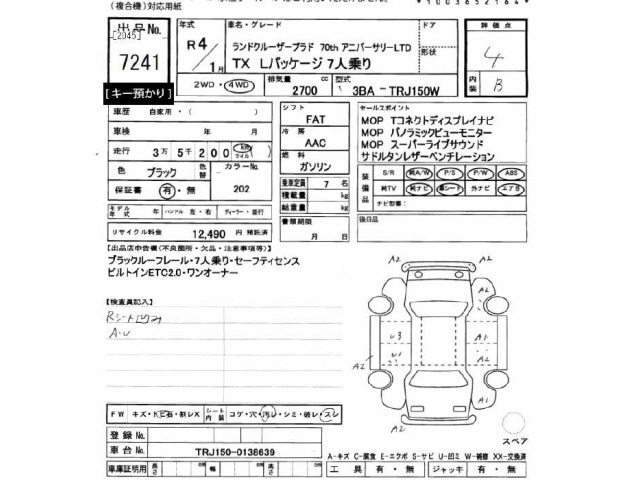 (複合機)対応用紙
*1003652164*
出品No.
[2045]
7241
[キー預かり]
年式
R4/1月
車名・グレード
ランドクルーザープラド 70th アニバーサリーLTD
TX Lパッケージ 7人乗り
ドア
形状
評価点
4
内装
B
2WD・4WD
排気量
2700
cc
型式
3BA- TRJ150W
車歴 自家用・( )
車検 年 月
走行 3万5千200 km マイル
色 ブラック 色替 カラーNo. 202
保証書 有・無
モデル年式 年 ハンドル 左・右 ディーラー・並行
リサイクル料金 12,490 円 預託済
シフト
FAT
冷房
AAC
燃料
ガソリン
乗車定員 7 名
積載量 kg
総重量 kg
書類期限
月 日
セールスポイント
MOP Tコネクトディスプレイナビ
MOP パノラミックビューモニター
MOP スーパーライブサウンド
サドルタンレザーベンチレーション
装備品
S/R 純A/W P/S P/W ABS
純TV 純ナビ 革シート 外ナビ エアB
ナビ型番:
後日品
【出品店申告欄(不良箇所・欠品・注意事項等)】
ブラックルーフレール・7人乗り・セーフティセンス
ビルトインETC2.0・ワンオーナー
【検査員記入】
Rシート凹み
A・U
A2
A2
U3
A1
U1
A1
A2
A2
A2
スペア
FW キズ・トビ石・割レX シート内装 コゲ・穴・汚レ・シミ・破レ・スレ
登録No.
車台No. TRJ150-0138639
車庫証明用 長さ cm 幅 cm 高さ cm
A-キズ C-腐食 E-エクボ S-サビ U-凹ミ W-補修 XX-交換済
工具 有・無 ジャッキ 有・無